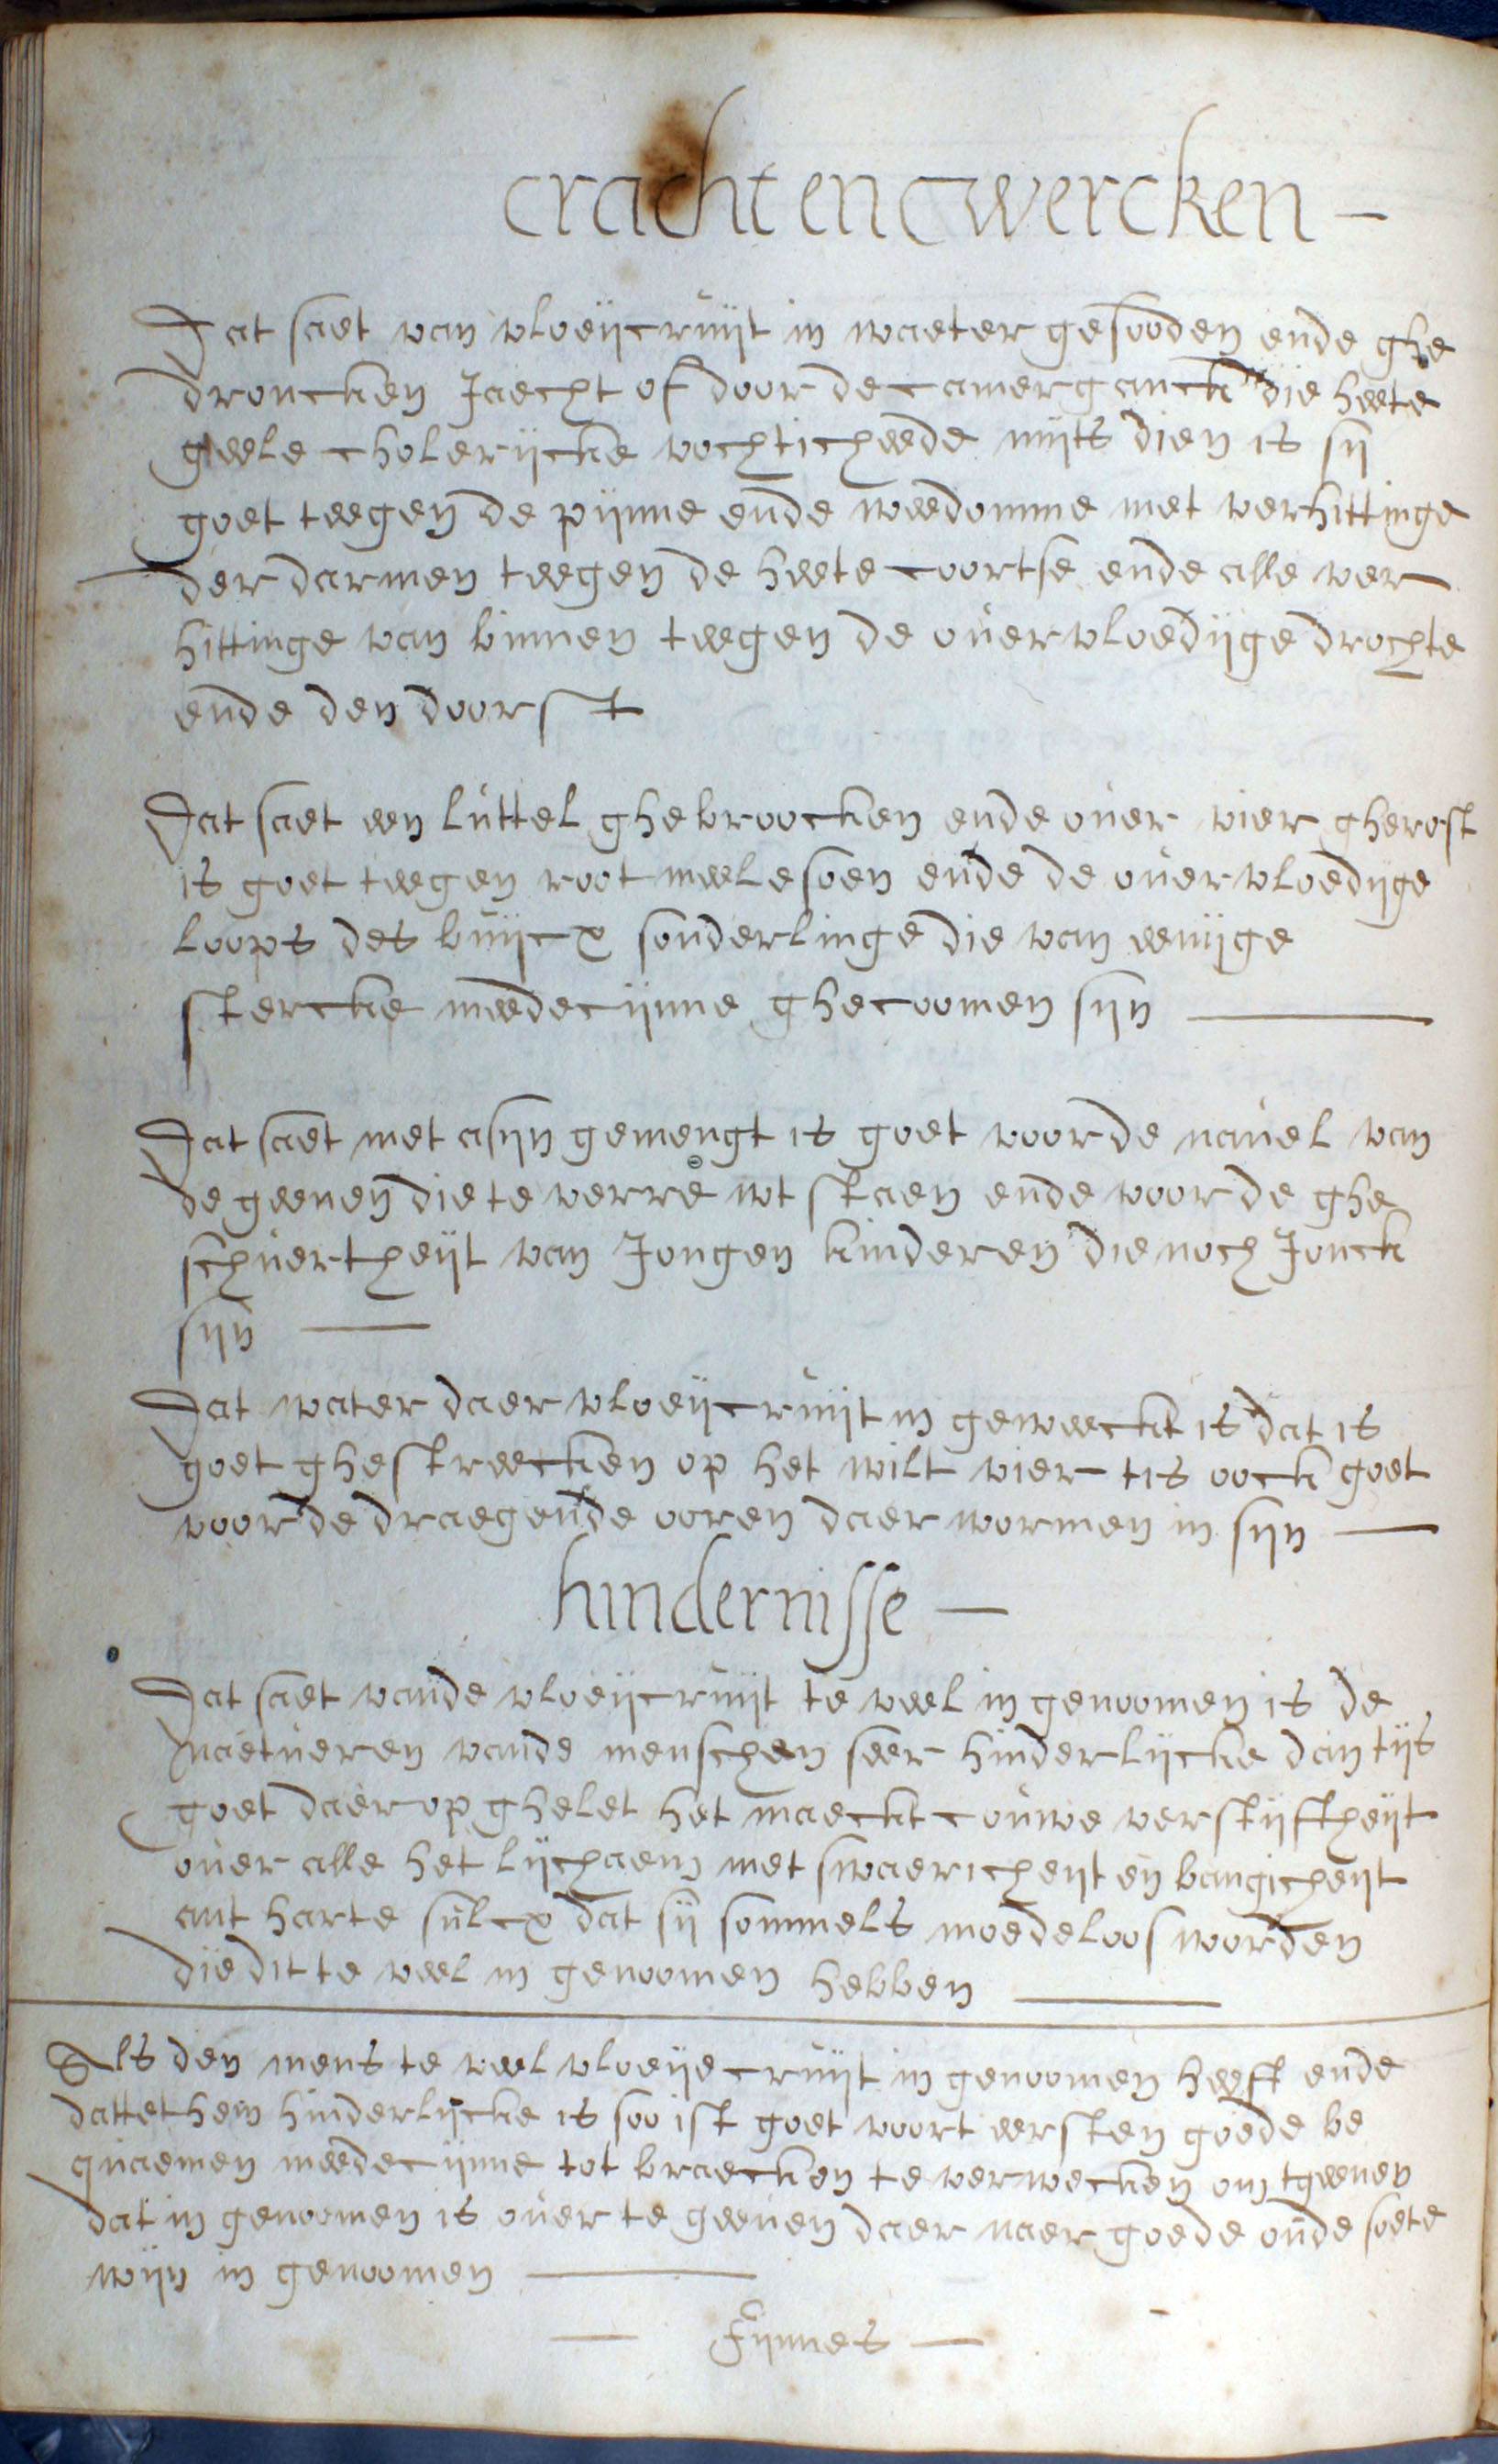 crachten wercken –
Dat saet van vloeijcruijt in waeter gesooden ende ghe
droncken Jaecht of door de camerganck die heete
geele cholerijcke vochticheede mijts dien is sij
goet teegen de pijnne ende weedomme met verhittinge
der darmen teegen de heete coortse ende alle ver
hittinge van binnen teegen de overvloedijge drochte
ende den doorst
Dat saet een luttel ghebroocken ende over vier gherost
is goet teegen root meelesoen ende de overvloedijge
loops des buijcx sonderlinge die van eenijge
stercke meedecijnne ghecoomen sijn —
Dat saet met asijn gemengt is goet voor de navel van
de geenen die te verre wt staen ende voor de ghe
schuertheijt van Jongen kinderen die noch Jonck
sijn —
Dat water daer vloeijcruijt in geweeckt is dat is
goet ghestreecken op het wilt vier tis oock goet
voor de draegende ooren daer wormen in sijn —
hindernisse –
Dat saet vande vloeijcruijt te veel in genoomen is de
naetueren vande menschen seer hinderlijcke dan tijs
goet daer op ghelet het maeckt couwe verstijftheijt
over alle het lijchaem met swaericheijt en bangicheijt
ant harte sulcx dat sij sommels moedeloos worden
die dit te veel in genoomen hebben —
Als den mens te veel vloeijecruijt in genoomen heeft ende
dattet hem hinderlijcke is soo ist goet voort eersten goede be
quaemen meedecijnne tot braecken te verwecken om tgeenen
dat in genoomen is over te geeven daer naer goede oude soete
wijn in genoomen —
— Fijnnes —